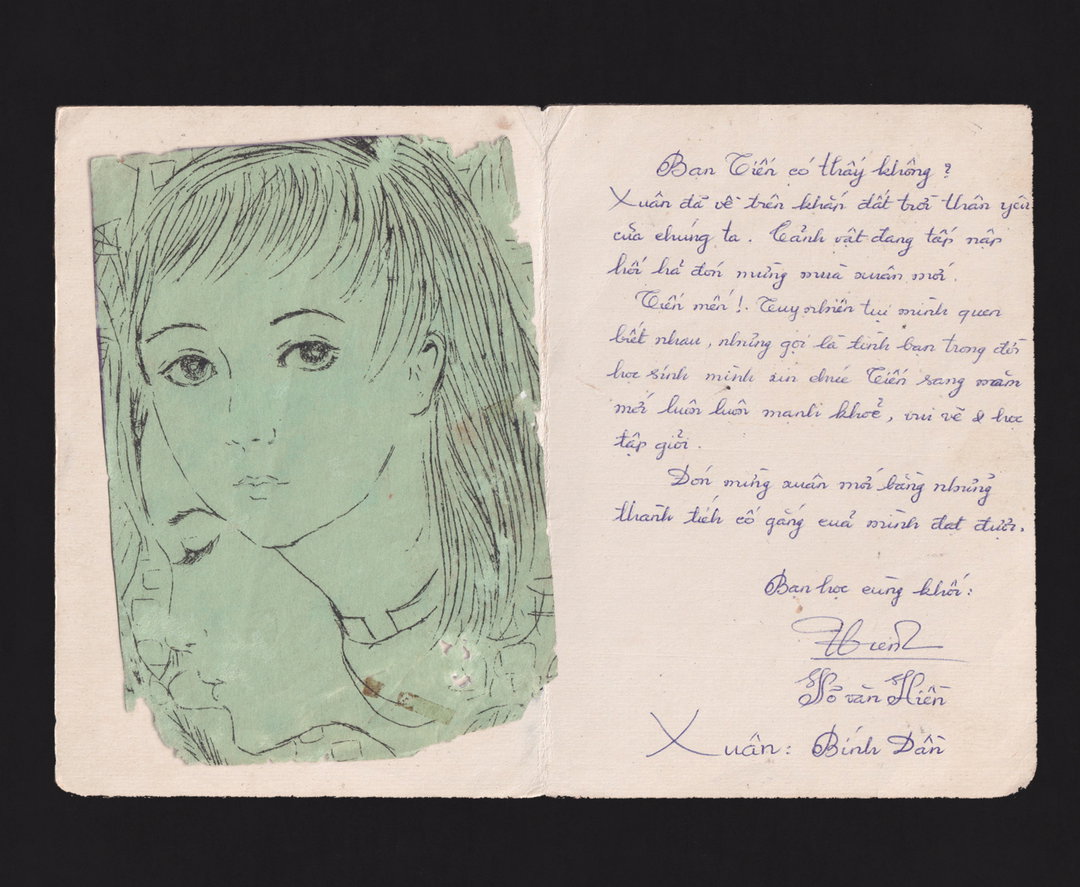 Bạn Tiến có thấy không ?
Xuân đã về trên khắp đất trời thân yêu
của chúng ta. Cảnh vật đang tấp nập
hối hả đón mừng mùa xuân mới.
Tiến mến !. Tuy nhiên tụi mình quen
biết nhau, nhưng gọi là tình bạn trong đời
học sinh mình xin chúc Tiến sang năm
mới luôn luôn mạnh khoẻ, vui vẽ & học
tập giỏi.
Đón mừng xuân mới bằng những
thành tích cố gắng cuả mình đạt được.
Bạn học cùng khối:
Hiền
văn Hiền
Xuân: Bính Dần